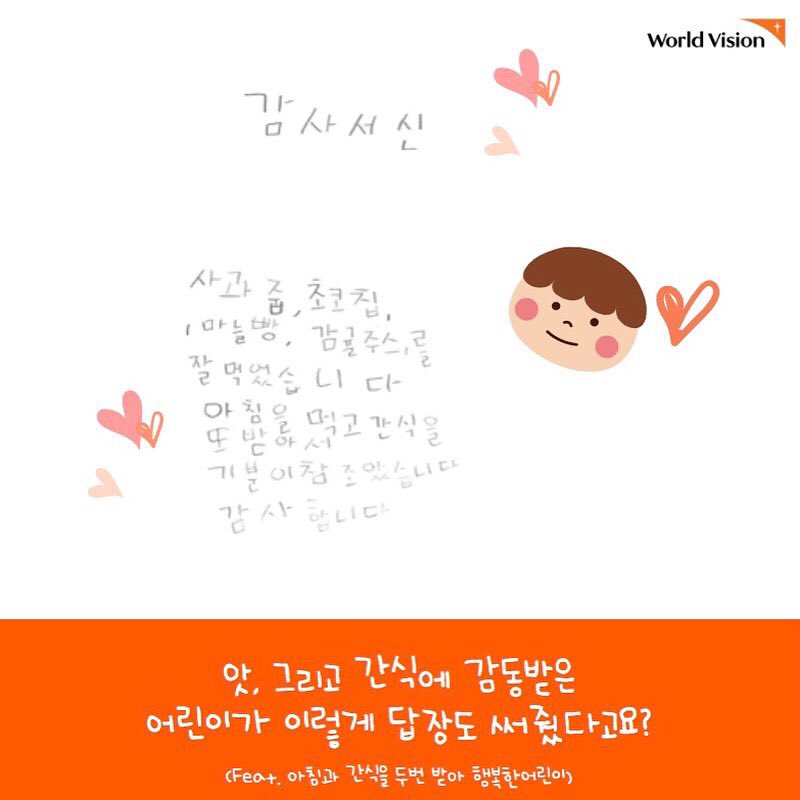 World Vision
감사서신
사과 즙, 초코칩,
, 마늘빵, 감귤주스,를
잘 먹었습니다
아침을 먹고 간식을
또 받아서
기분이 참 조았습니다
감사 합니다
앗, 그리고 간식에 감동받은
어린이가 이렇게 답장도 써줬다고요?
(Feat. 아침과 간식을 두번 받아 행복한어린이)